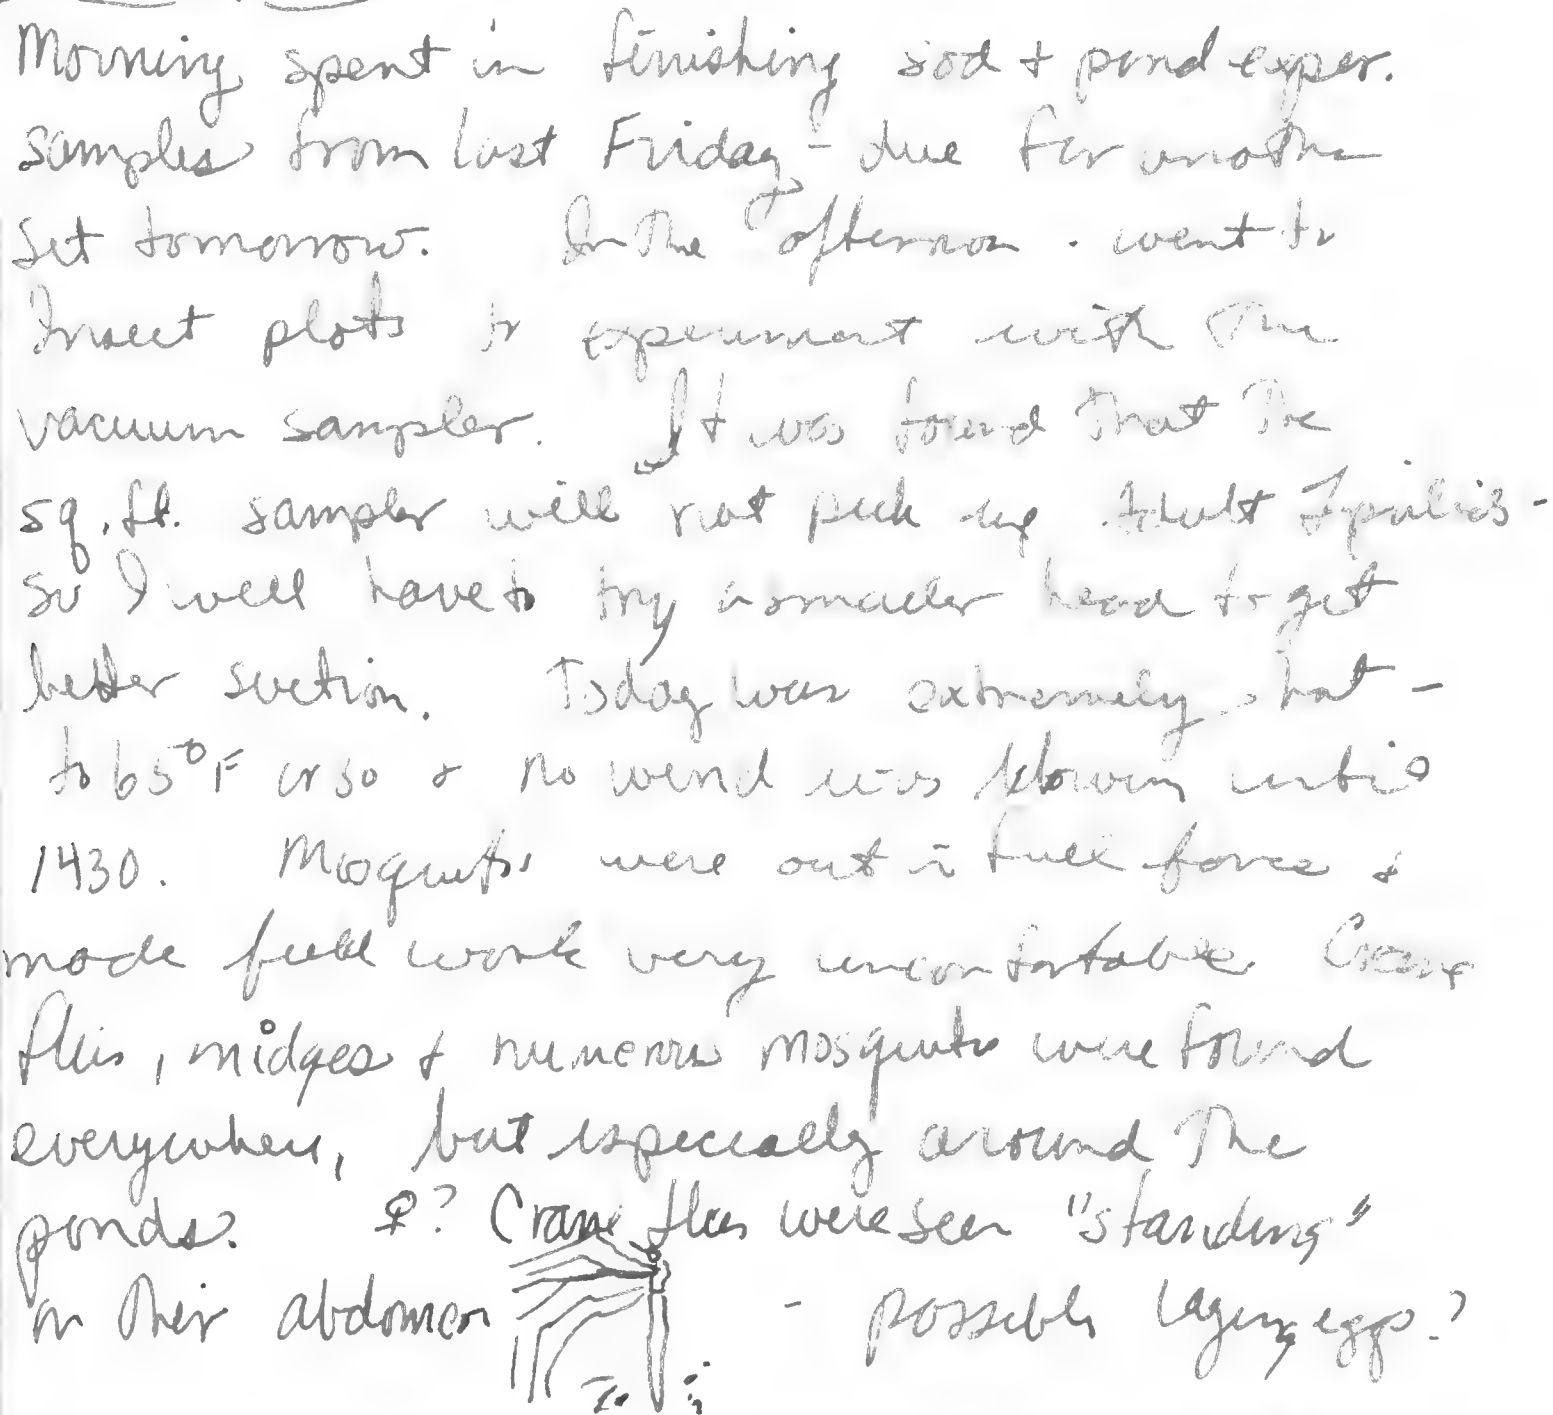 Morning spent in finishing sod + pond exper.
samples from last Friday - due for another
set tomorrow. In the afternoon. went to
Insect plots to experiment with the
vacuum sampler. It was found that the
sq. ft. sampler will not pick up Adult Tipulids -
so I will have to try a smaller head to get
better suction. Today was extremely hot -
to 65°F or so & no wind was blowing until
1430. Mosquitos were out in full force &
made field work very uncomfortable. Crane
flies, midges & numerous mosquitos were found
everywhere, but especially around the
ponds. ♀? Crane flies were seen "standing"
on their abdomen - possibly laying eggs?